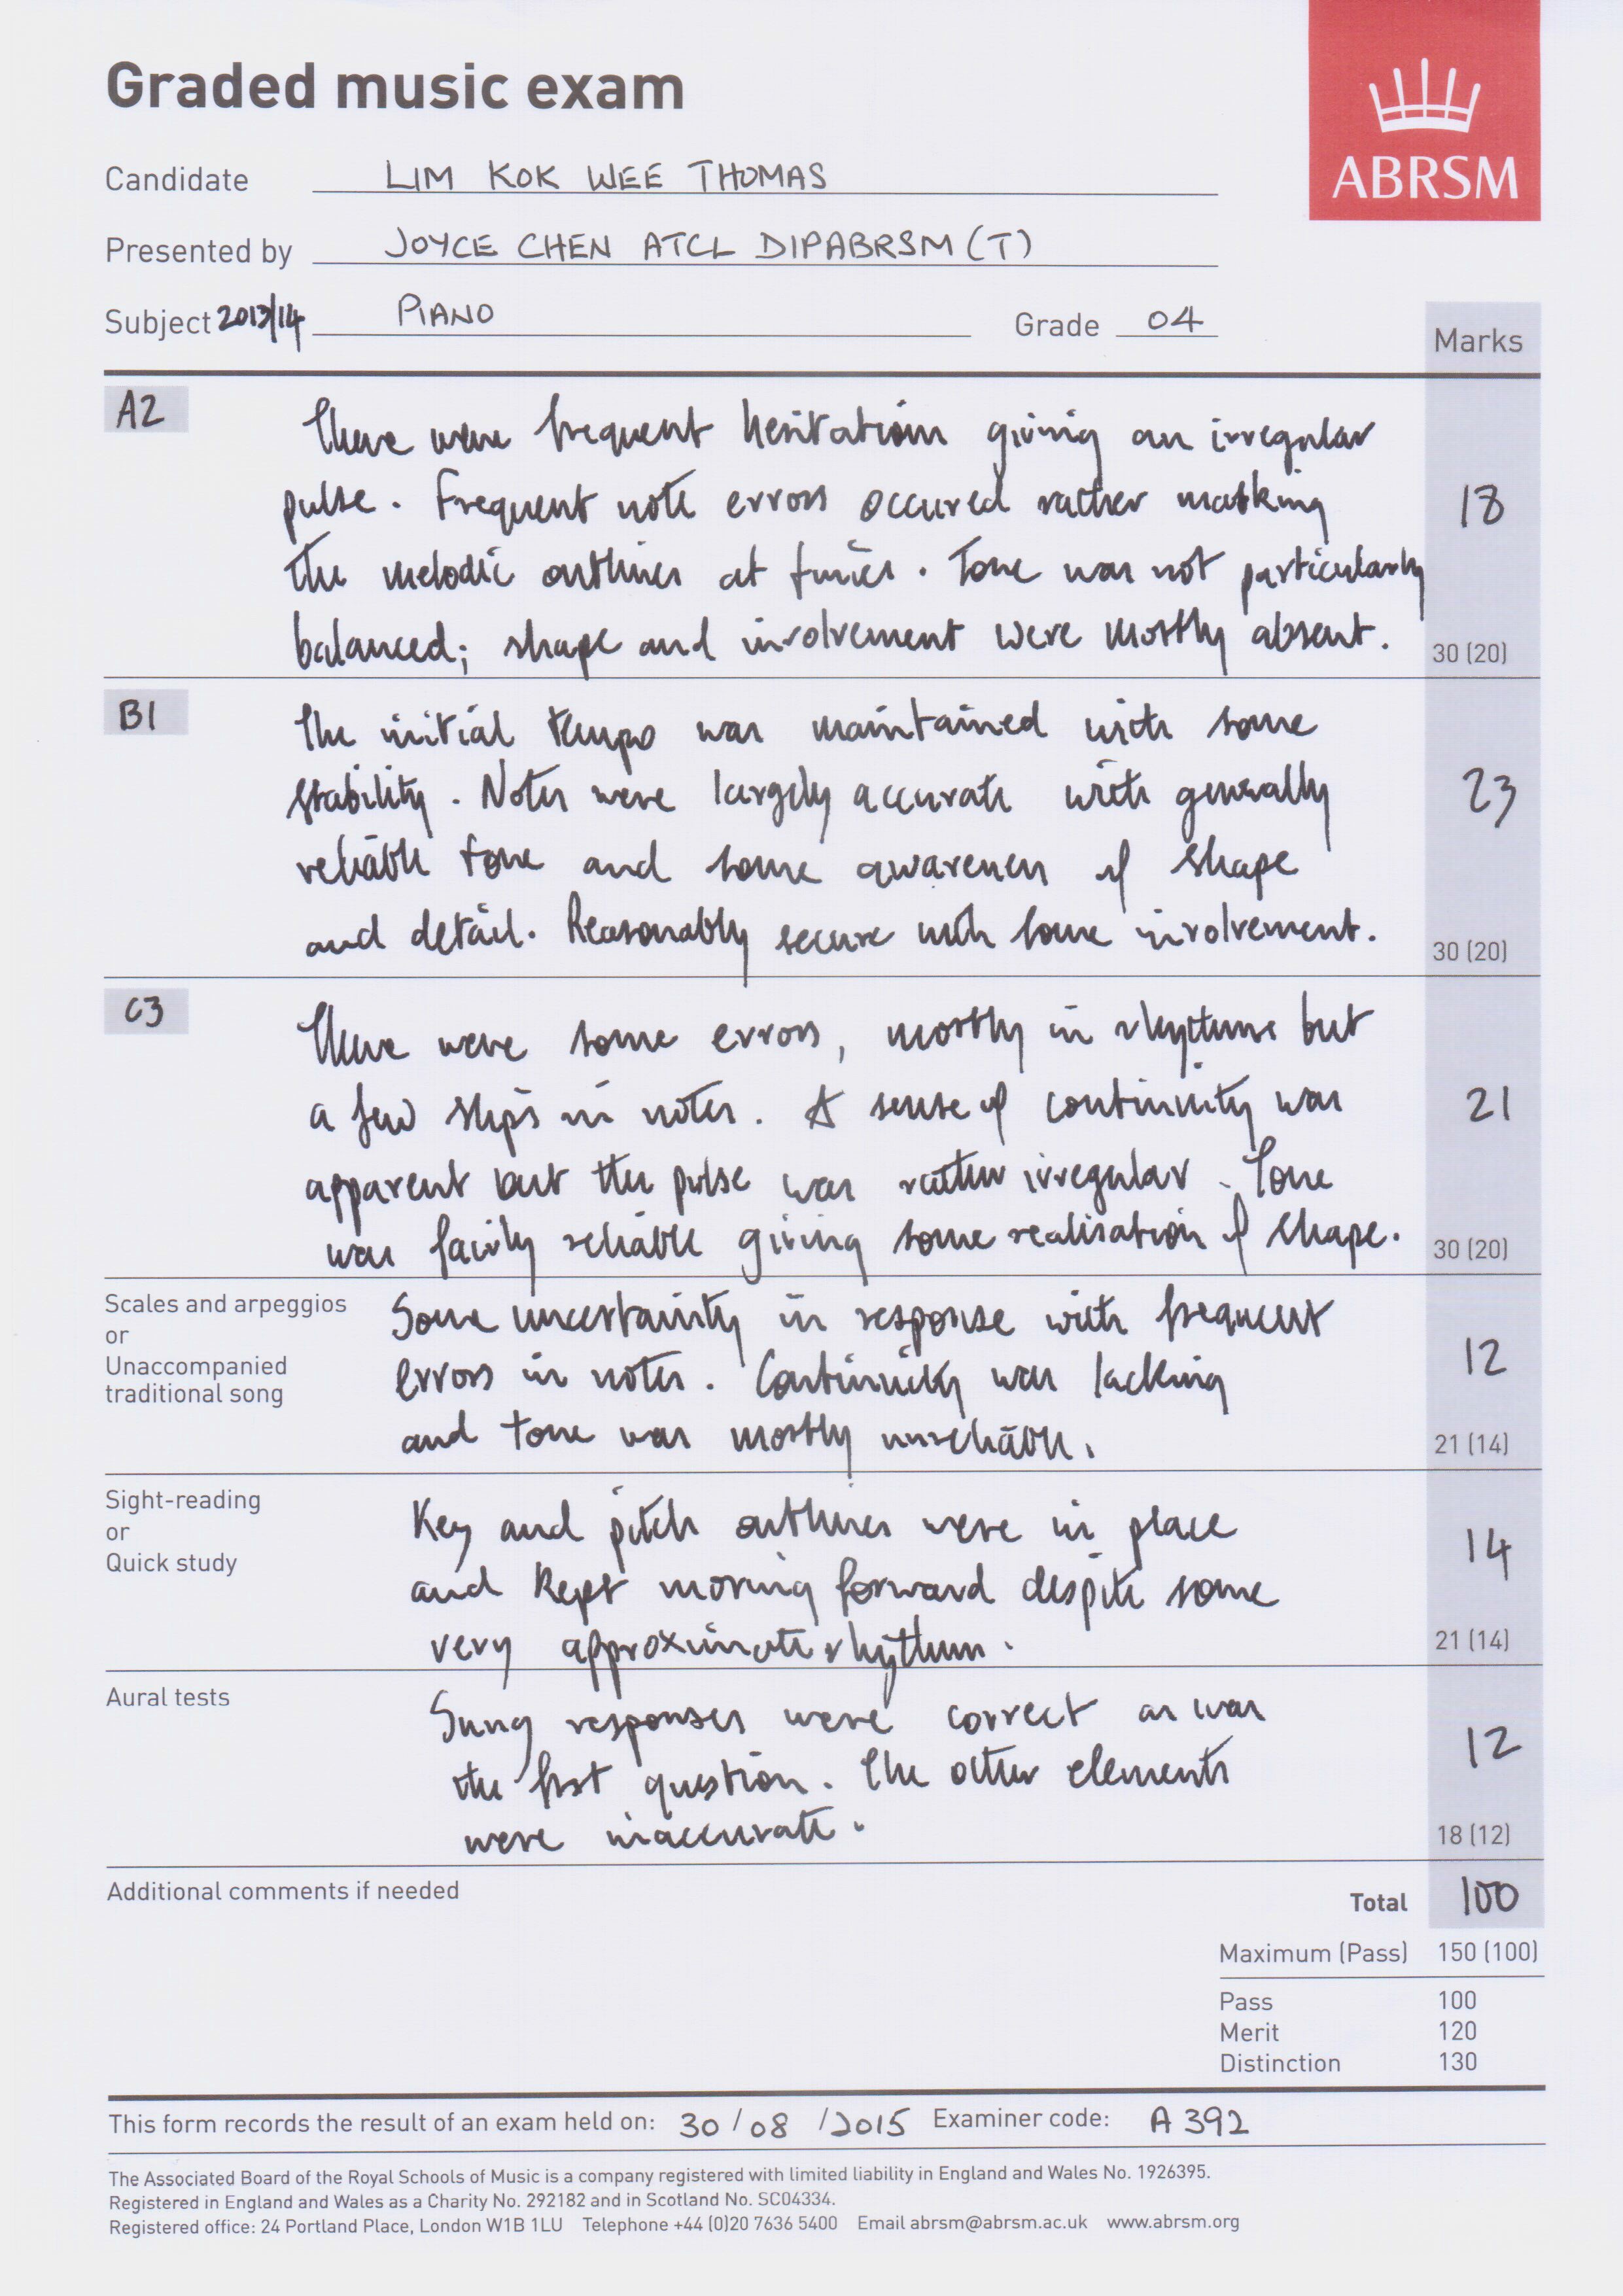 Graded music exam
ABRSM
Candidate LIM KOK WEE THOMAS
Presented by JOYCE CHEN ATCL DIPABRSM (T)
Subject 2013/14 PIANO Grade 04
Marks
A2
There were frequent hesitations giving an irregular
pulse. Frequent note errors occured rather masking
the melodic outlines at times. Tone was not particularly
balanced; shape and involvement were mostly absent.
18
30 (20)
B1
The initial tempo was maintained with some
stability. Notes were largely accurate with generally
reliable tone and some awareness of shape
and detail. Reasonably secure with some involvement.
23
30 (20)
C3
There were some errors, mostly in rhythms but
a few slips in notes. A sense of continuity was
apparent but the pulse was rather irregular. Tone
was fairly reliable giving some realisation of shape.
21
30 (20)
Scales and arpeggios
or
Unaccompanied
traditional song
Some uncertainty in response with frequent
errors in notes. Continuity was lacking
and tone was mostly unreliable.
12
21 (14)
Sight-reading
or
Quick study
Key and pitch outlines were in place
and kept moving forward despite some
very approximate rhythm.
14
21 (14)
Aural tests
Sung responses were correct as was
the first question. The other elements
were inaccurate.
12
18 (12)
Additional comments if needed
Total 100
Maximum (Pass) 150 (100)
Pass 100
Merit 120
Distinction 130
This form records the result of an exam held on: 30/08/2015 Examiner code: A392
The Associated Board of the Royal Schools of Music is a company registered with limited liability in England and Wales No. 1926395.
Registered in England and Wales as a Charity No. 292182 and in Scotland No. SC04334.
Registered office: 24 Portland Place, London W1B 1LU Telephone +44 (0)20 7636 5400 Email abrsm@abrsm.ac.uk www.abrsm.org